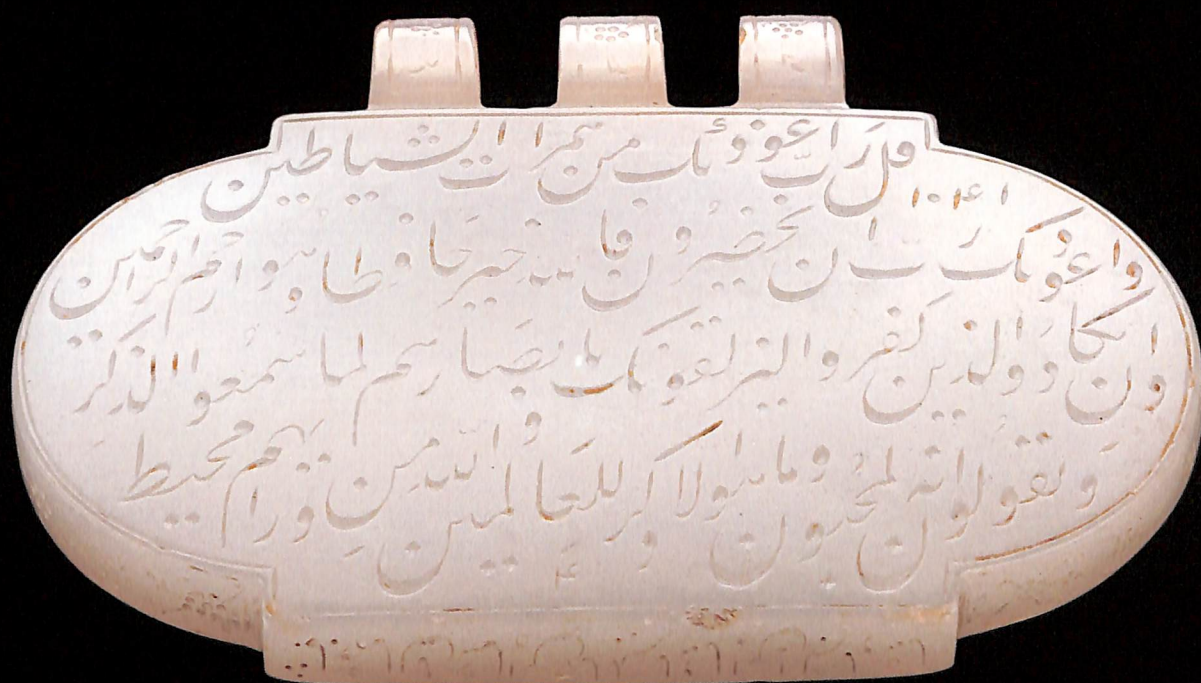 قل رب اعوذ بك من همزات الشياطين
واعوذ بك رب ان يحضرون فالله خير حافظا وهو ارحم الراحمين
وان يكاد والذين كفروا ليزلقونك بابصارهم لما سمعوا الذكر
ويقولون انه لمجنون وما هو الا ذكر للعالمين والله من ورائهم محيط